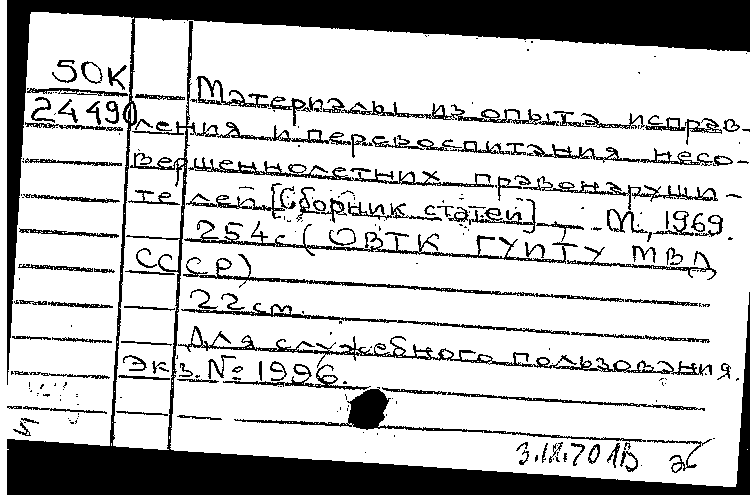 50К
24490
Материалы из опыта исправ-
ления и перевоспитания несо-
вершеннолетних правонаруши-
телей [Сборник статей]. М., 1969.
254с (ОВТК ГУИТУ МВД
СССР)
22 см.
Для служебного пользования.
Экз. № 1996.